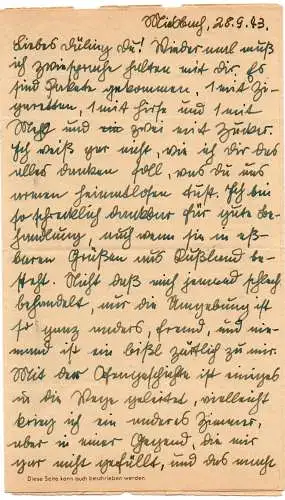 Miesbach, 28.9.43.
Liebes Düling Du! Wieder mal muß
ich Zwiesprache halten mit dir. Es
sind Pakete gekommen, 1 mit Zi-
garetten, 1 mit Hirse und 1 mit
Mehl und ein zwei mit Zucker.
Ich weiß gar nicht, wie ich dir das
alles danken soll, was du uns
armen heimatlosen tust. Ich bin
so schrecklich dankbar für gute Be-
handlung, auch wenn sie in eß-
baren Grüßen aus Rußland be-
steht. Nicht daß mich jemand schlecht
behandelt, nur die Umgebung ist
so ganz anders, fremd, und nie-
mand ist ein bißl zärtlich zu mir.
Mit der Ofengeschichte ist einiges
in die Wege geleitet, vielleicht
krieg ich ein anderes Zimmer,
aber in einer Gegend, die mir
gar nicht gefällt, und das macht
Diese Seite kann auch beschrieben werden